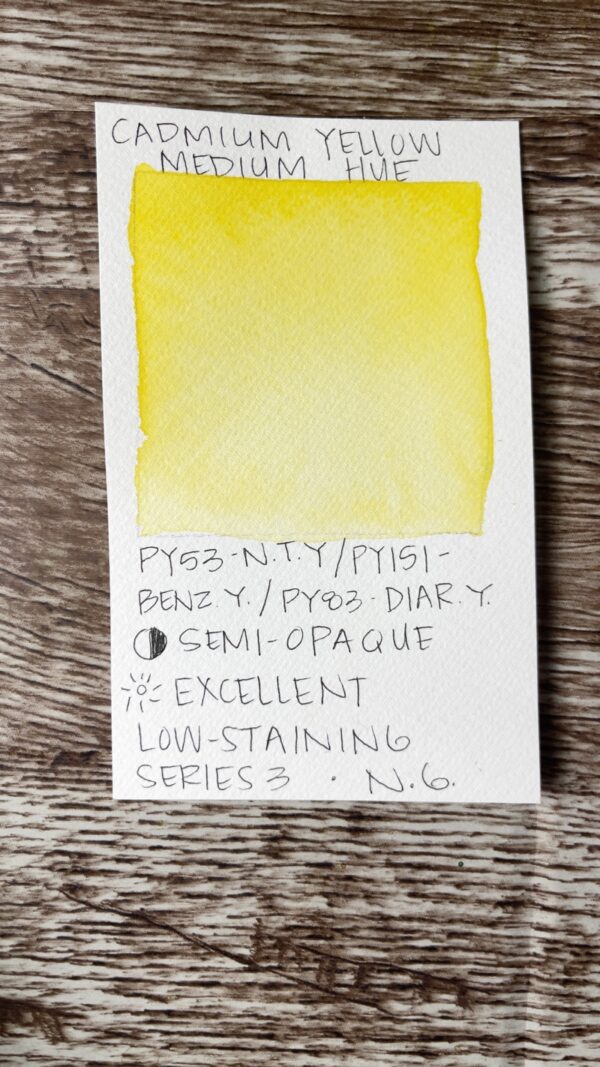 CADMIUM YELLOW
MEDIUM HUE
PY53-N.T.Y/PY151-
BENZ.Y./PY83-DIAR.Y.
SEMI-OPAQUE
EXCELLENT
LOW-STAINING
SERIES 3 · N.G.